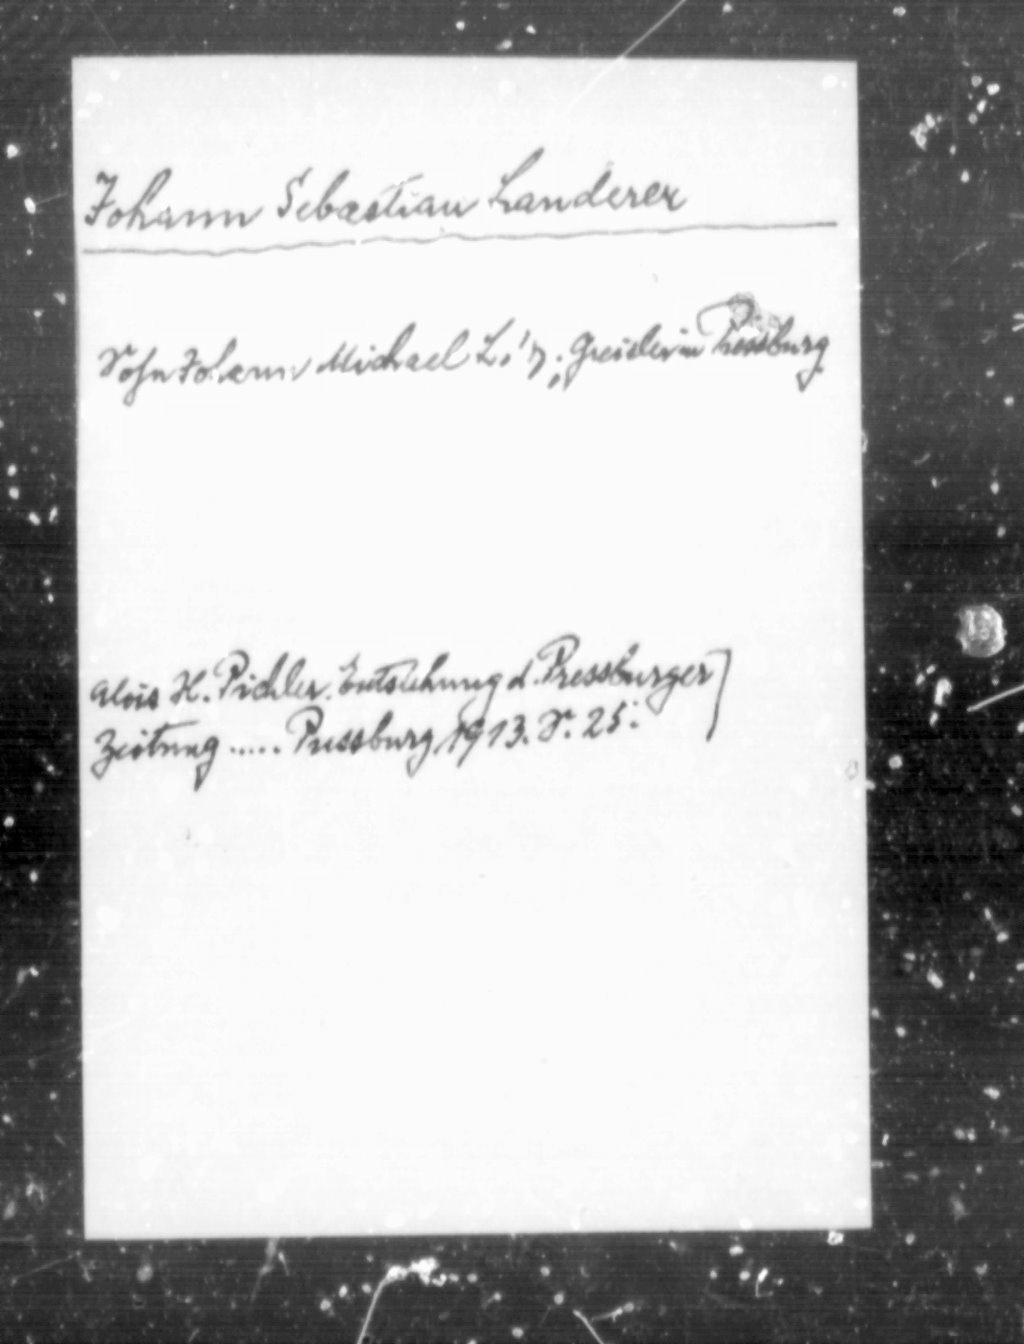 Johann Sebastian Landerer
Sohn Johann Michael L.'s, Greisler in Pressburg
Alois H. Pichler. Entstehung d. Pressburger
Zeitung ..... Pressburg 1913. S. 25.